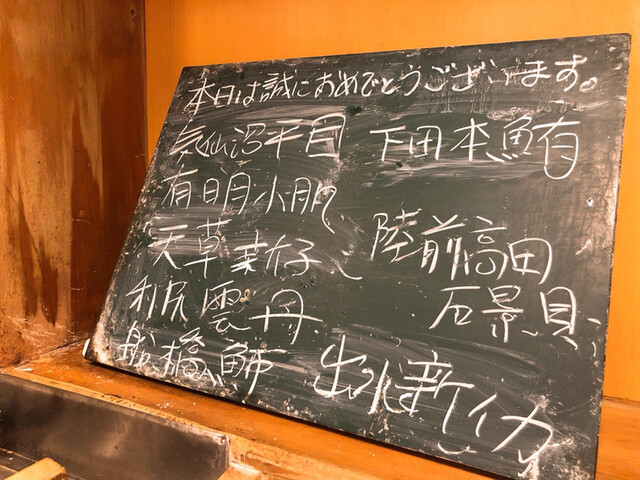 本日は誠におめでとうございます。
気仙沼平目
下田本鮪
有明小肌
天草
陸前高田
石景貝
利尻雲丹
船橋
出水新イカ